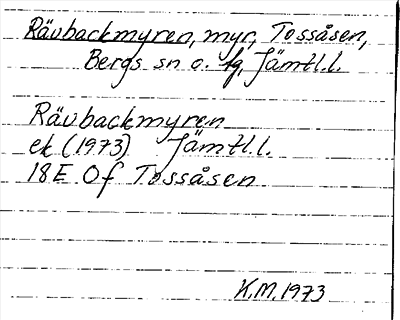 Rävbackmyren, myr, Tossåsen,
Bergs sn o. tg, Jämtl.l.
Rävbackmyren
ek (1973) Jämtl.l.
18E 0f Tossåsen
K.M. 1973